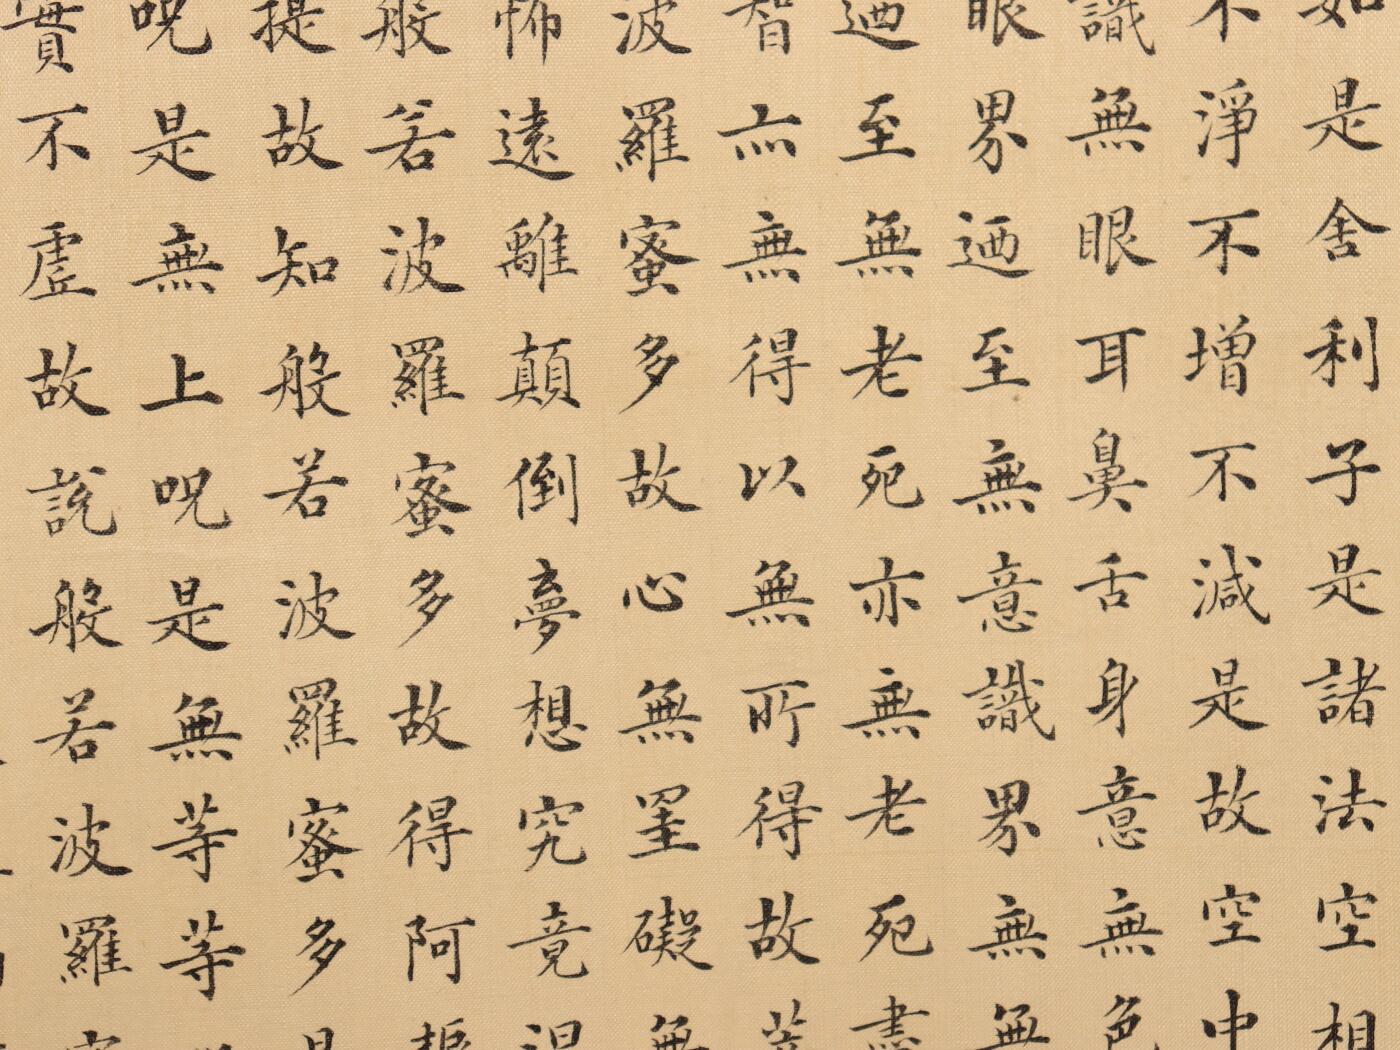 如是舍利子是諸法空相
不淨不增不減是故空中
識無眼耳鼻舌身意無色
眼界迺至無意識界無無
迺至無老死亦無老死盡
智亦無得以無所得故菩
波羅蜜多故心無罣礙無
怖遠離顛倒夢想究竟涅
般若波羅蜜多故得阿耨
提故知般若波羅蜜多是
呪是無上呪是無等等
實不虛故說般若波羅蜜